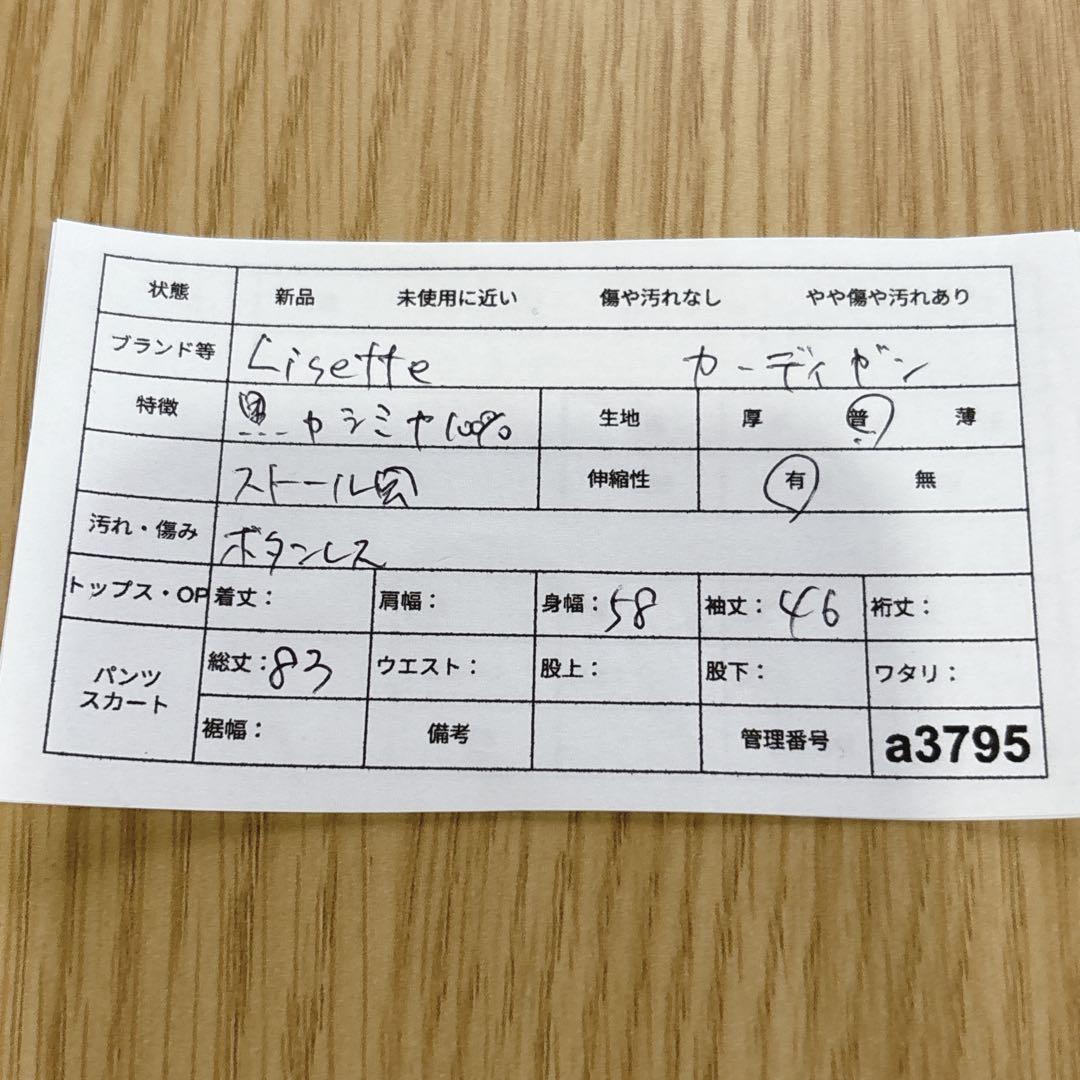 状態 新品 未使用に近い 傷や汚れなし やや傷や汚れあり
ブランド等 Lisette カーディガン
特徴 黒 カシミヤ100% 生地 厚 普 薄
ストール風 伸縮性 有 無
汚れ・傷み ボタンレス
トップス・OP 着丈： 肩幅： 身幅：58 袖丈：46 裄丈：
パンツ スカート 総丈：83 ウエスト： 股上： 股下： ワタリ：
裾幅： 備考 管理番号 a3795